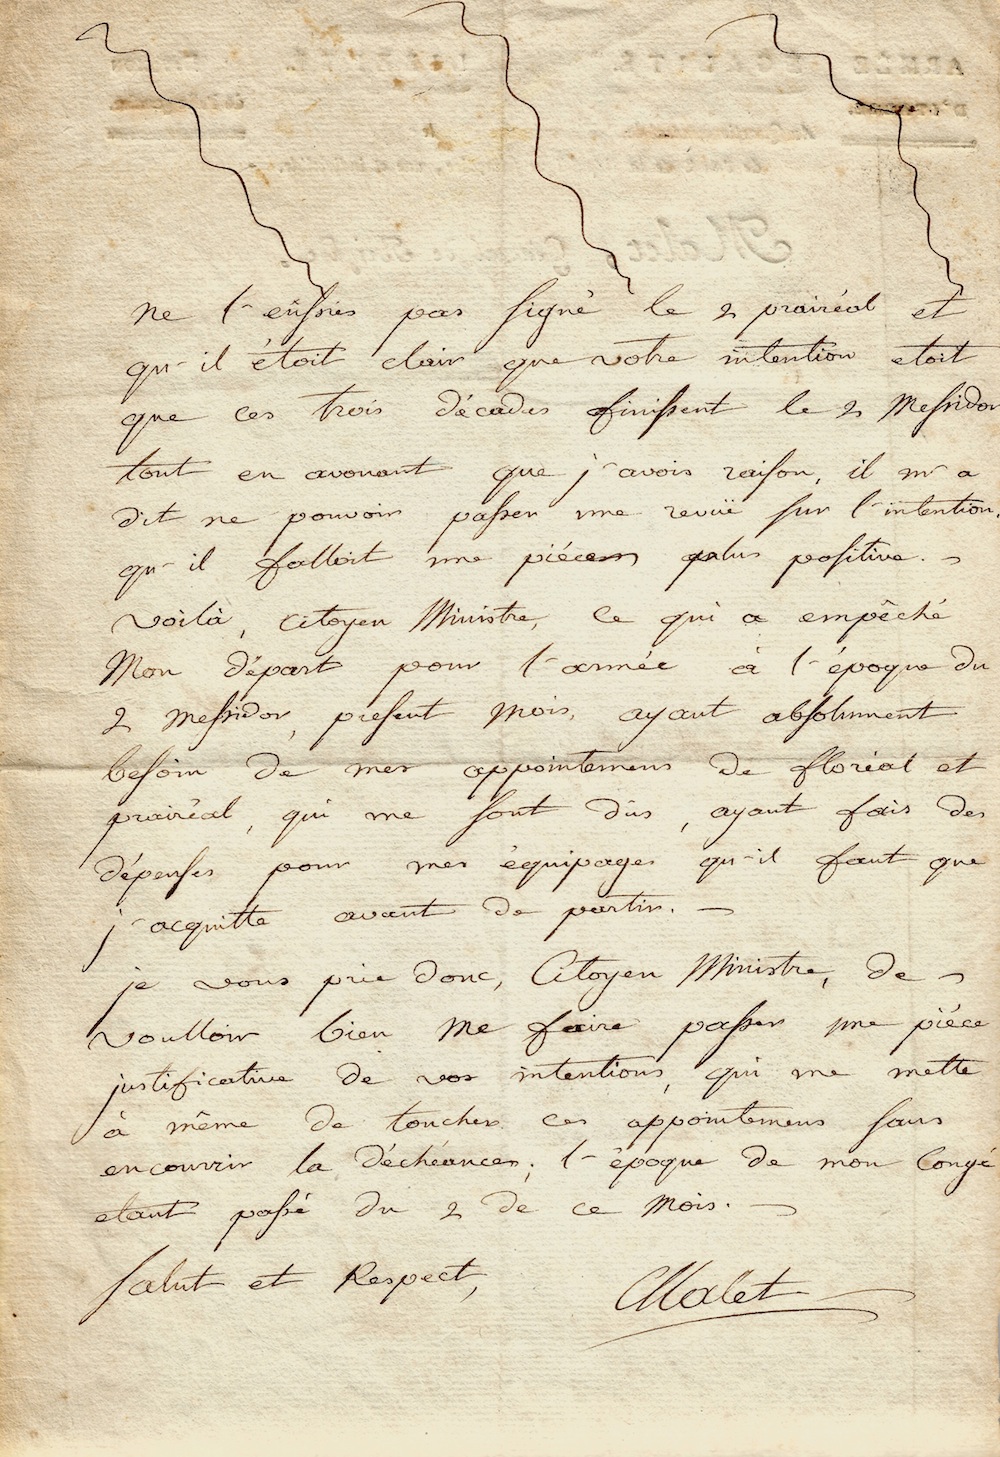 ne l'eüssiés pas signé le 2 prairéal et
qu'il étoit clair que votre intention etoit
que ces trois décades finissent le 2 Messidor
tout en avouant que j'avois raison, il m'a
dit ne pouvoir passer une revüe sur l'intention,
qu'il falloit une piéce plus positive. –
voilà, citoyen Ministre, ce qui a empêché
Mon départ pour l'armée à l'époque du
2 messidor, present mois, ayant absolument
besoin de mes appointemens de floréal et
prairéal, qui me sont dûs, ayant fais des
dépenses pour mes équipages qu'il faut que
j'acquitte avant de partir. –
je vous prie donc, Citoyen Ministre, de –
voulloir bien me faire passer une piéce
justificative de vos intentions, qui me mette
à même de toucher ces appointemens sans
encourir la déchéance; l'époque de mon Congé
etant passé du 2 de ce Mois. –
Salut et Respect,
Malet